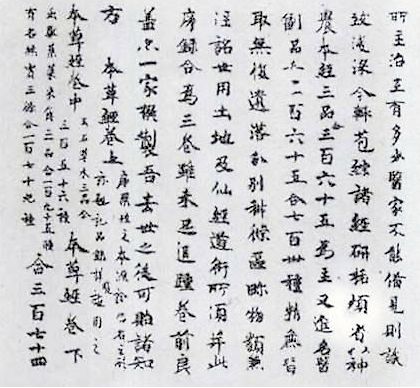 所主治互有多少醫家不能備見則識
致淺深今輒苞綜諸經研括煩省以神
農本經三品合三百六十五為主又進名醫
副品亦三百六十五合七百卅種精麁皆
取無復遺落分別科條區畛物類兼
注詺世用土地及仙經道術所須并此
序錄合為三卷雖未足追踵卷前良
蓋亦一家撰製吾去世之後可貽諸知
方 本草經卷上 序藥性之本源詮病名之形
題記品錄詳覽施用之
本草經卷中 玉石草木三品合三百五十六種 本草經卷下
蟲獸菓菜米食三品合一百九十五種
有名無實三條合一百七十九種 合三百七十四